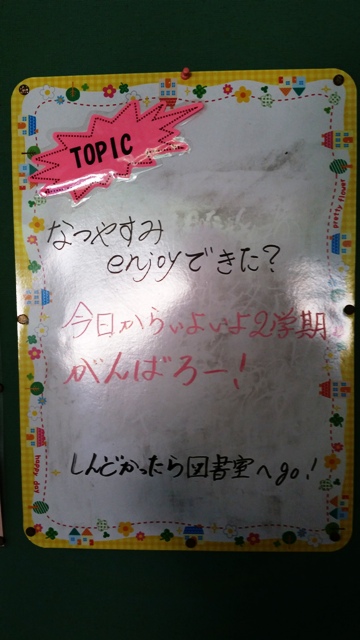 TOPIC
なつやすみ
enjoyできた?
今日からいよいよ2学期。
がんばろー!
しんどかったら図書室へgo!
pretty flower
happy day